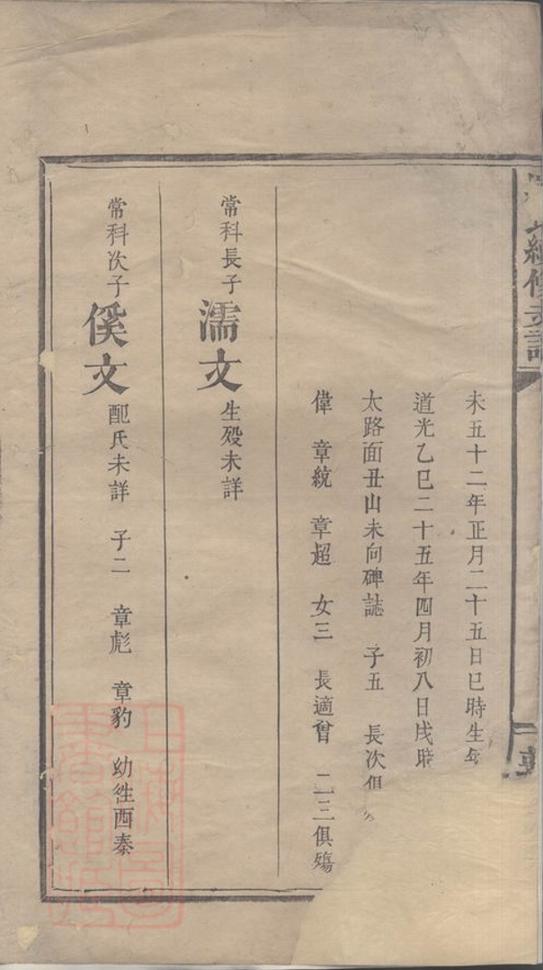 續修支譜
未五十二年正月二十五日巳時生
道光乙巳二十五年四月初八日戌時
太路面丑山未向碑誌 子五 長次俱
偉 章統 章超 女三 長適曾 二三俱殤
常科長子 濡文 生歿未詳
常科次子 傒文 配氏未詳 子二 章彪 章豹 幼徃西秦